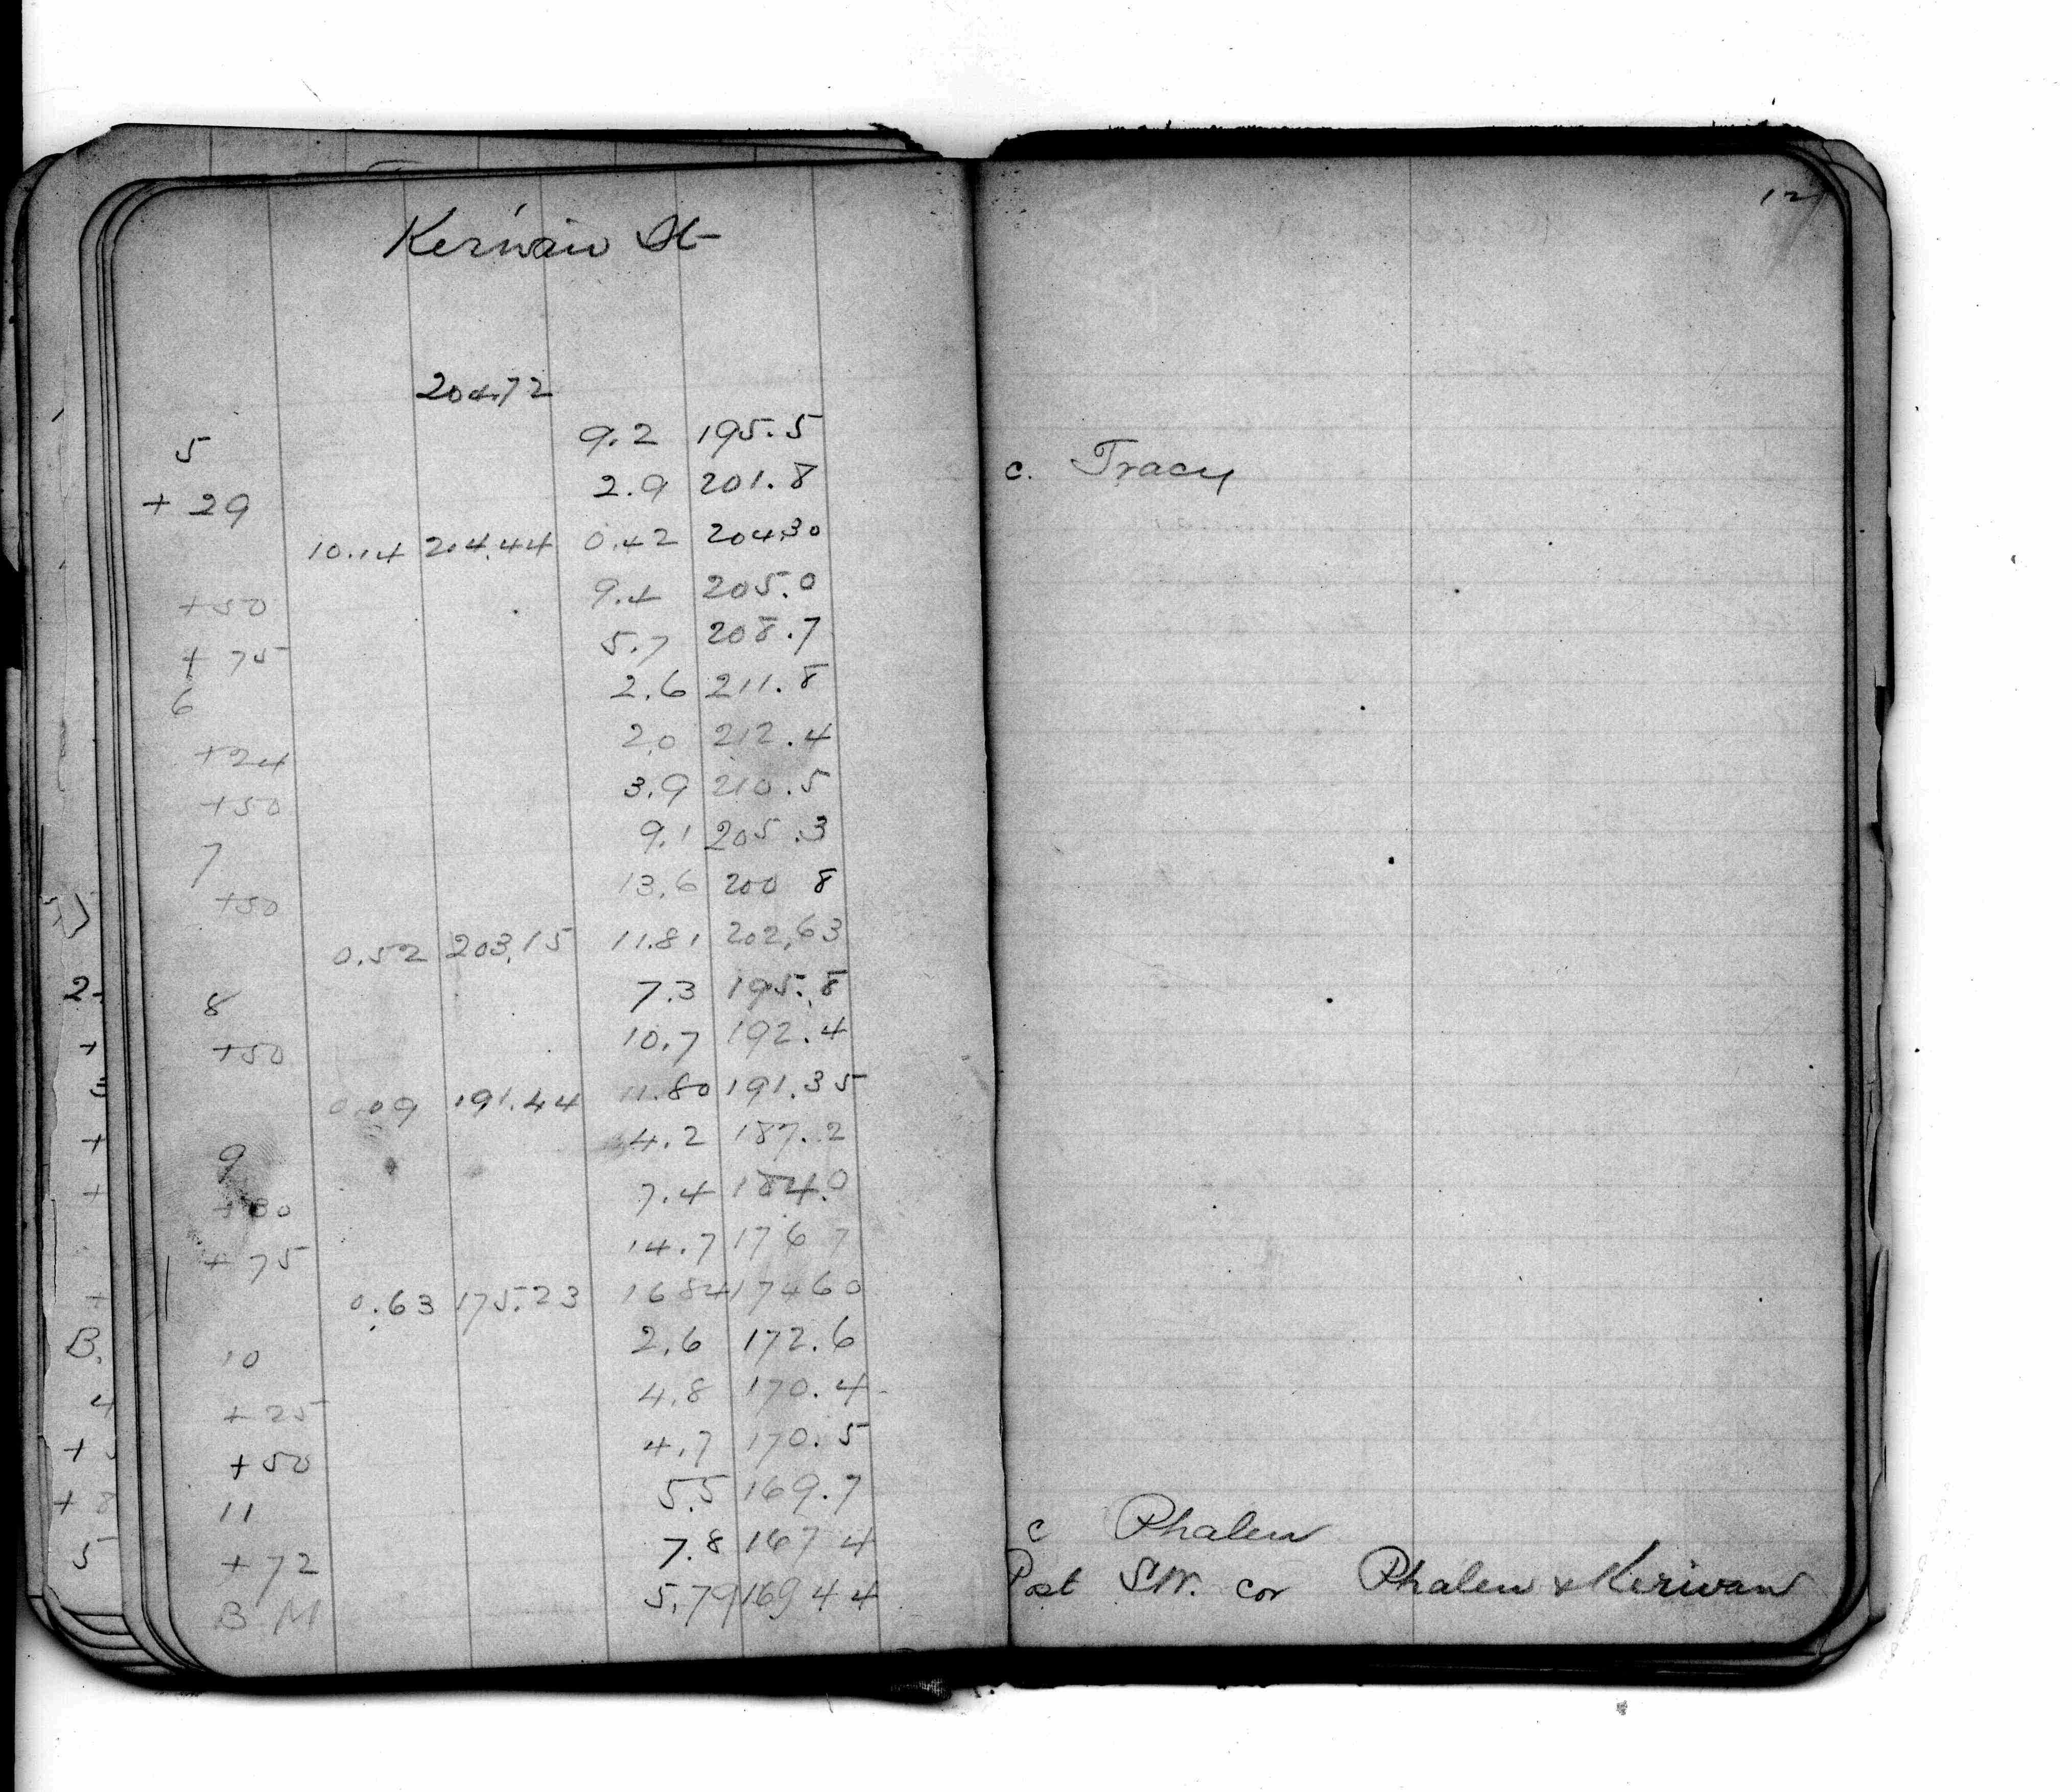 12
Kerwin St
204.72
5 9.2 195.5 c. Tracy
+ 29 2.9 201.8
10.14 214.44 0.42 204.30
+50 9.4 205.0
+ 75 5.7 208.7
6 2.6 211.8
+24 2.0 212.4
+50 3.9 210.5
7 9.1 205.3
+50 13.6 200 8
0.52 203.15 11.81 202.63
8 7.3 195.8
+50 10.7 192.4
0.09 191.44 11.80 191.35
9 4.2 187.2
+30 7.4 184.0
+ 75 14.7 176 7
0.63 175.23 16 84 174 60
10 2.6 172.6
+ 25 4.8 170.4
+50 4.7 170.5
11 5.5 169.7
+ 72 7.8 167 4 c Phalen
B M 5.79 169 44 Post S.W. cor Phalen & Kerwan
2.
+
3
+
+
+
B.
4
+ 5
+ 8
5